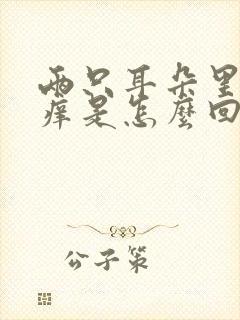 兩只耳朵里
癢是怎麼回
公子策